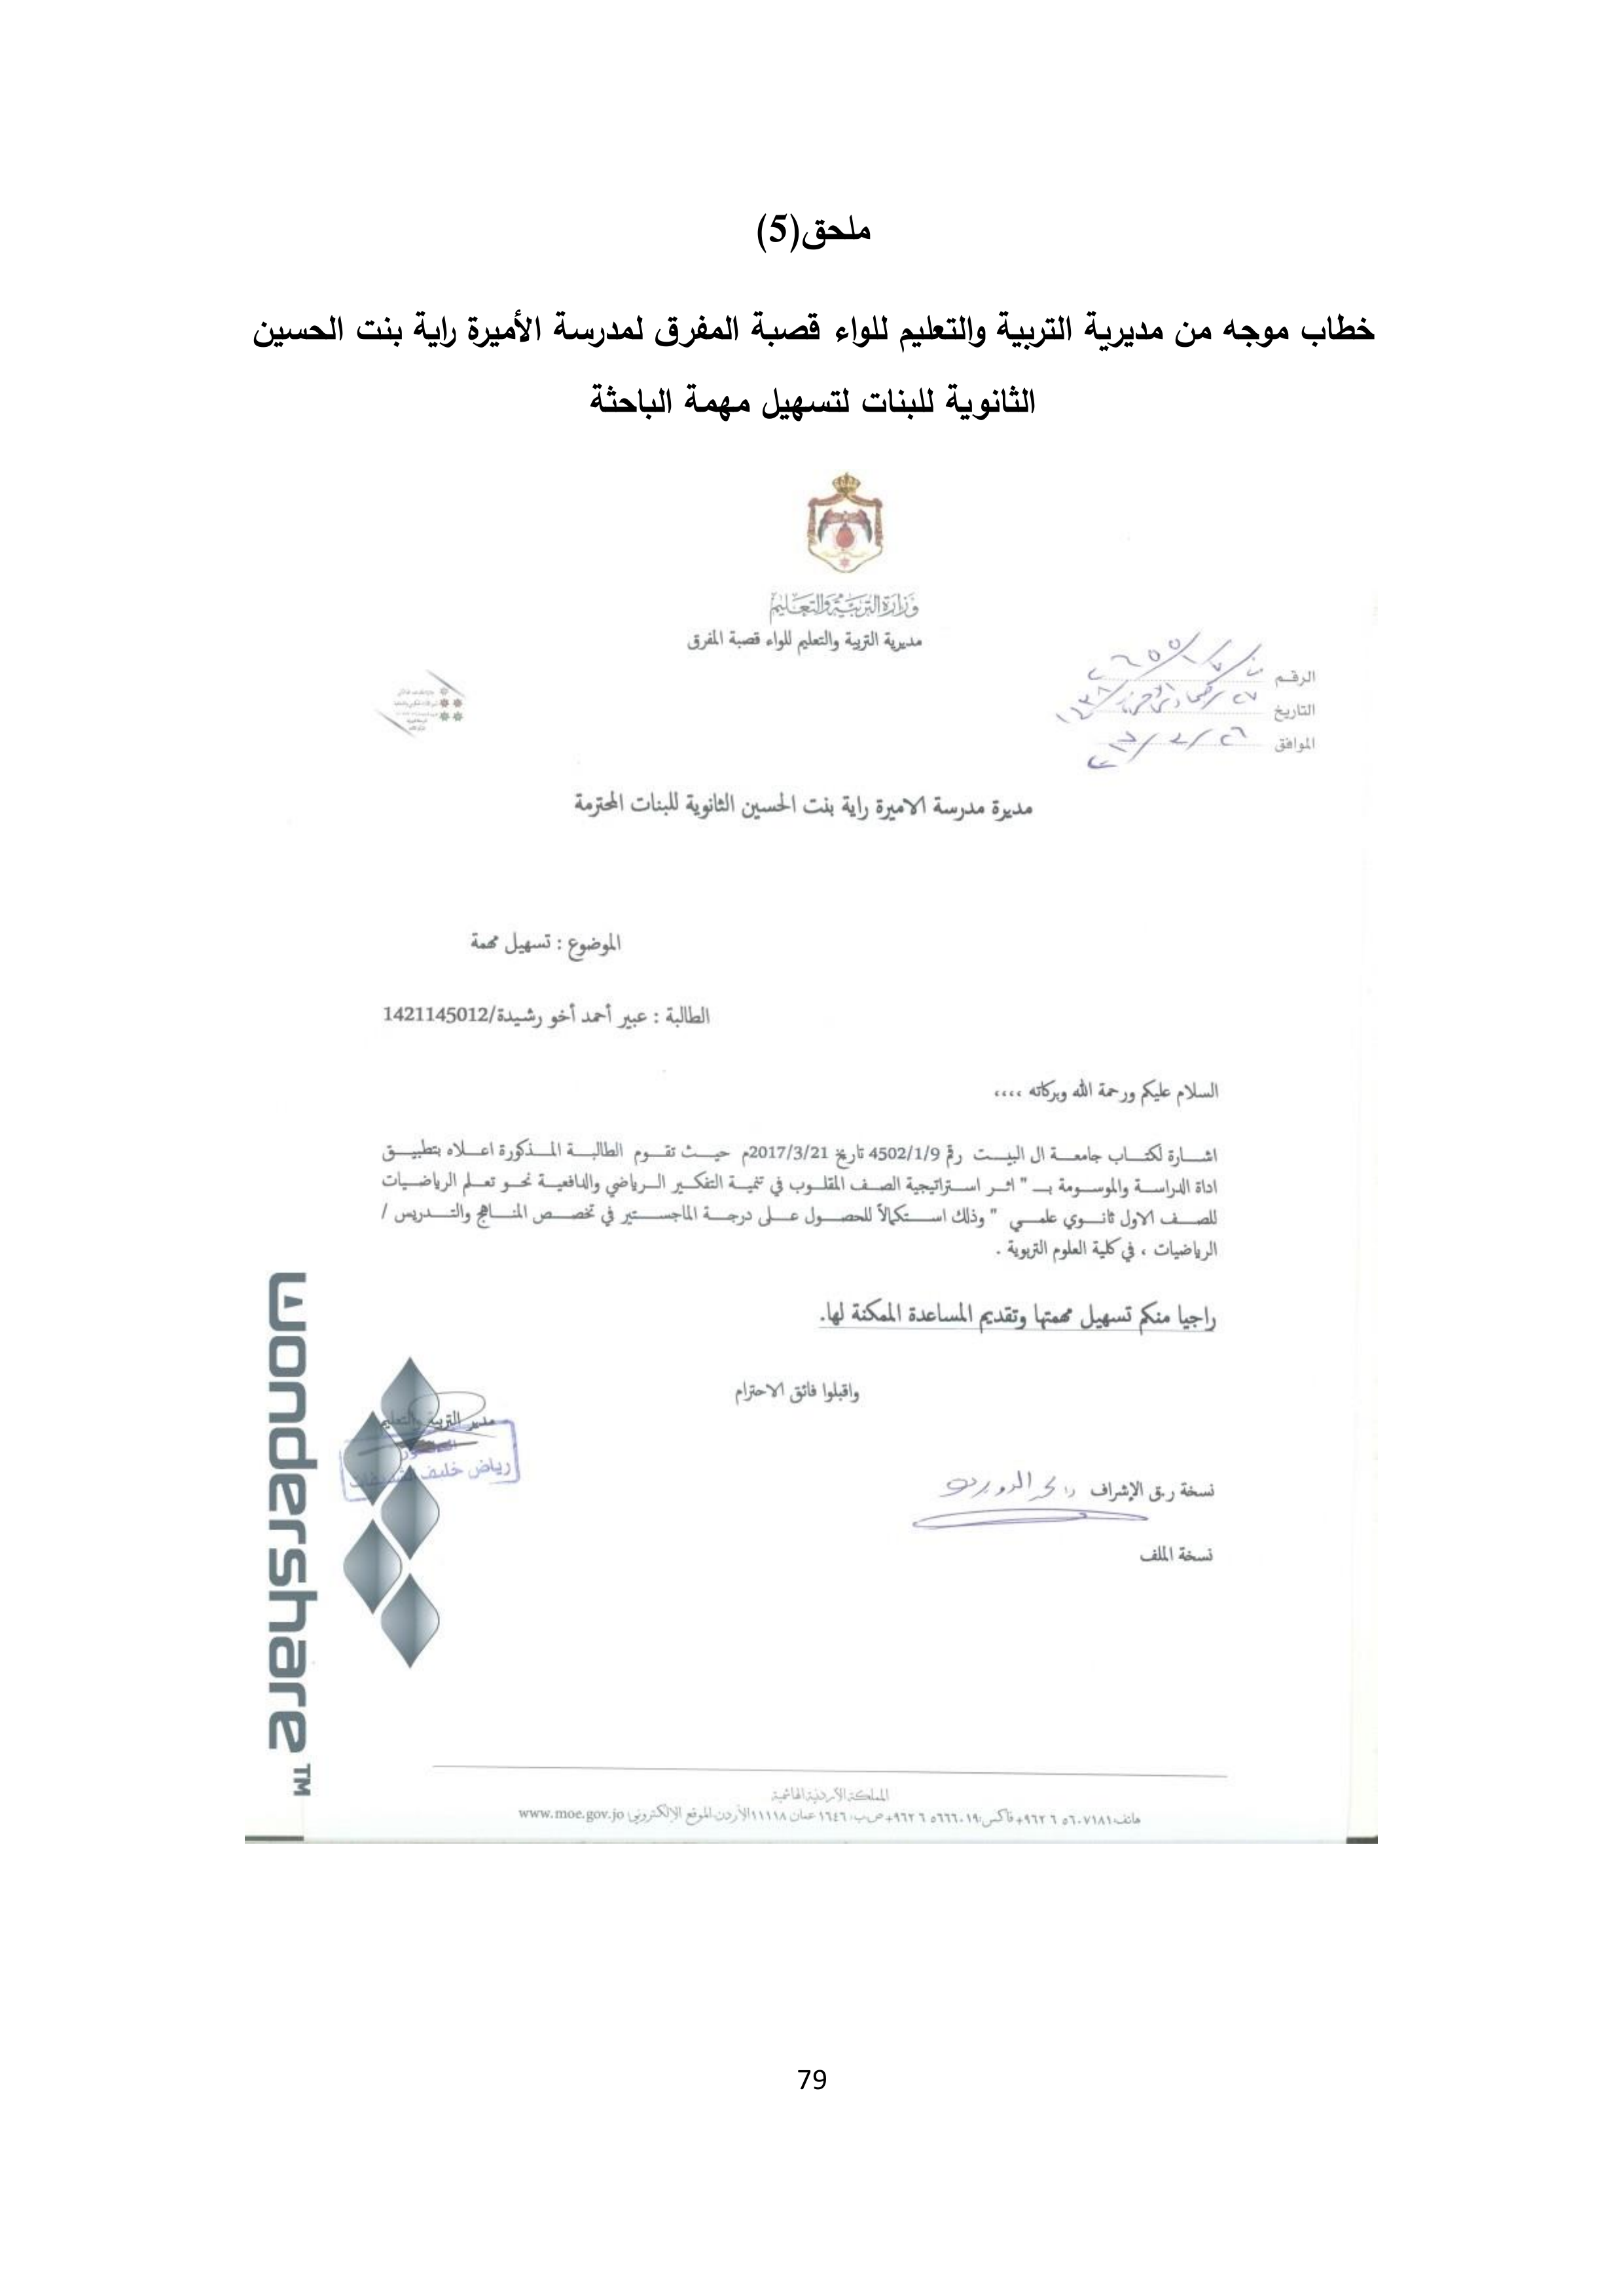 ملحق(5)
خطاب موجه من مديرية التربية والتعليم للواء قصبة المفرق لمدرسة الأميرة راية بنت الحسين
الثانوية للبنات لتسهيل مهمة الباحثة
وزارة التربية والتعليم
مديرية التربية والتعليم للواء قصبة المفرق
الرقم
التاريخ
الموافق
مديرة مدرسة الاميرة راية بنت الحسين الثانوية للبنات المحترمة
الموضوع : تسهيل مهمة
الطالبة : عبير أحمد أخو رشيدة/1421145012
السلام عليكم ورحمة الله وبركاته ،،،،
اشارة لكتاب جامعة ال البيت رقم 4502/1/9 تاريخ 2017/3/21م حيث تقوم الطالبة المذكورة اعلاه بتطبيق
اداة الدراسة والموسومة بـ " اثر استراتيجية الصف المقلوب في تنمية التفكير الرياضي والدافعية نحو تعلم الرياضيات
للصف الاول ثانوي علمي " وذلك استكمالاً للحصول على درجة الماجستير في تخصص المناهج والتدريس /
الرياضيات ، في كلية العلوم التربوية .
راجيا منكم تسهيل مهمتها وتقديم المساعدة الممكنة لها.
واقبلوا فائق الاحترام
مدير التربية والتعليم
الدكتور
رياض خليف
نسخة ر.ق الإشراف
نسخة الملف
wondershare™
المملكة الأردنية الهاشمية
هاتف: ٥٦٠٧١٨١ ٦ ٩٦٢+ فاكس: ٥٦٦٦٠١٩ ٦ ٩٦٢+ ص.ب: ١٦٤٦ عمان ١١١١٨ الأردن. الموقع الإلكتروني: www.moe.gov.jo
79